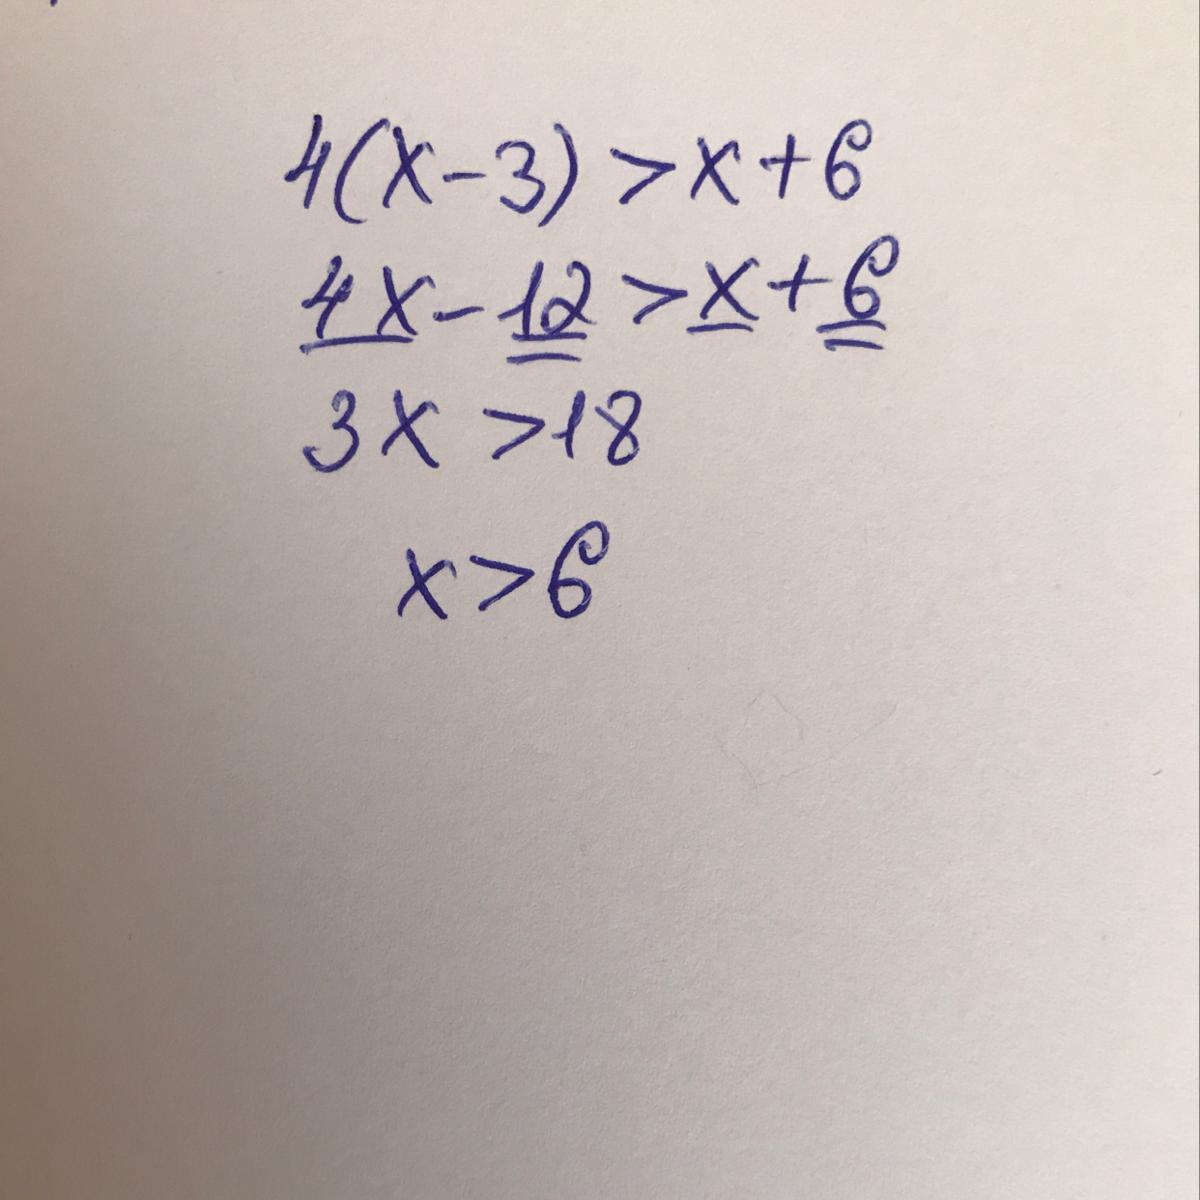 4(x-3)>x+6
4x-12>x+6
3x>18
x>6